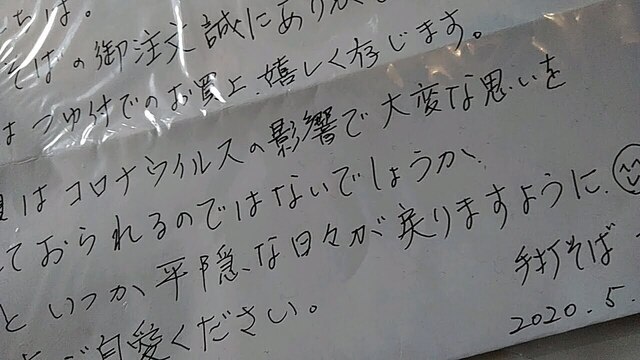 ちは。
そばの御注文誠にありがと
まつゆ付でのお買上、嬉しく存じます。
はコロナウイルスの影響で大変な思いを
ておられるのではないでしょうか。
といつか平隠な日々が戻りますように。
ご自愛ください。
手打そば
2020.5.